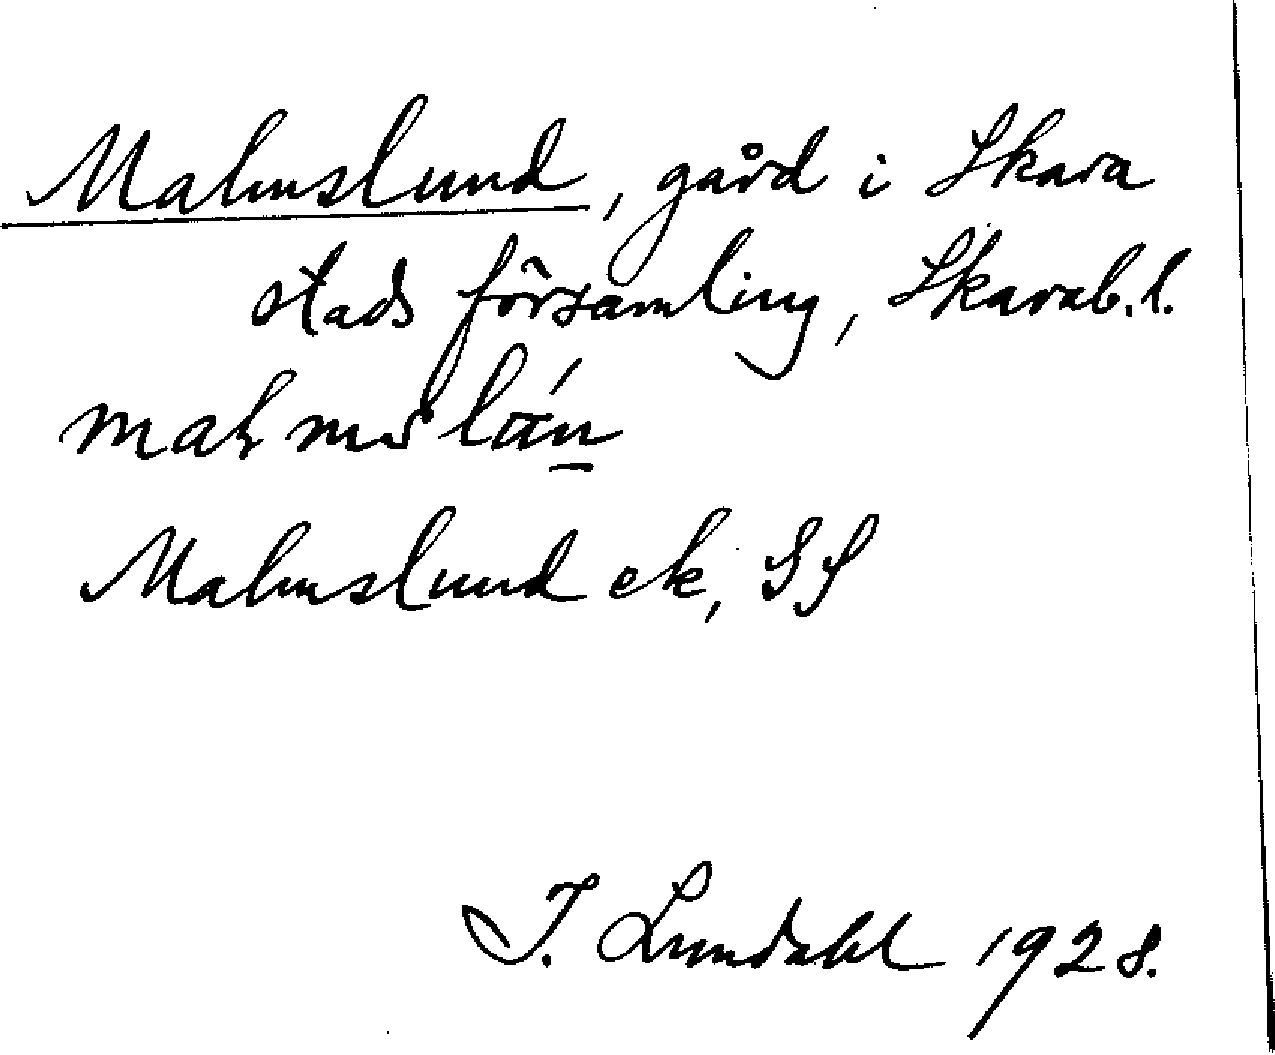 Malmslund, gård i Skara
stads församling, Skarab. l.
Malmslund ek, SS
I. Lundahl 1928.